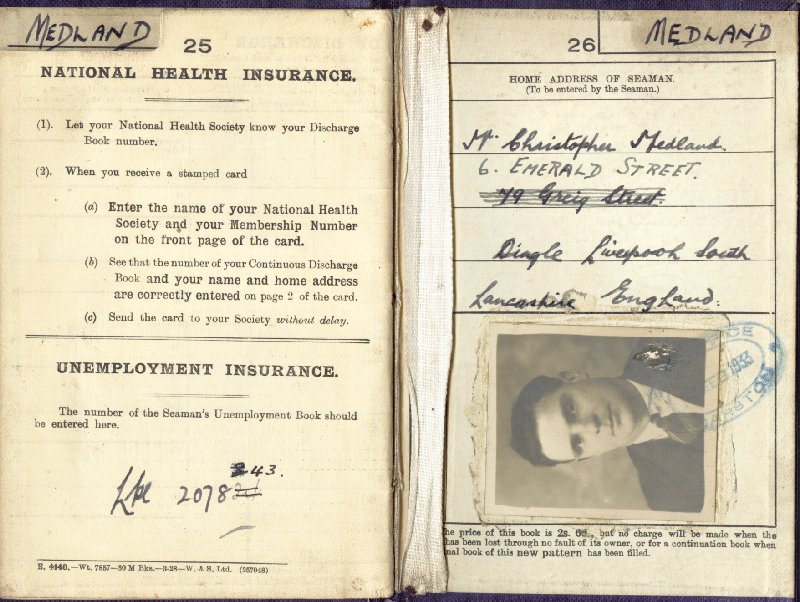 MEDLAND
25
NATIONAL HEALTH INSURANCE.
(1). Let your National Health Society know your Discharge
Book number.
(2). When you receive a stamped card
(a) Enter the name of your National Health
Society and your Membership Number
on the front page of the card.
(b) See that the number of your Continuous Discharge
Book and your name and home address
are correctly entered on page 2 of the card.
(c) Send the card to your Society without delay.
UNEMPLOYMENT INSURANCE.
The number of the Seaman's Unemployment Book should
be entered here.
43.
2078
E. 4440.—Wt. 7857—30 M Bks.—3-28—W. & S. Ltd. (757948)
26
MEDLAND
HOME ADDRESS OF SEAMAN.
(To be entered by the Seaman.)
Christopher Medland.
6. EMERALD STREET.
79 Greig Street.
Dingle Liverpool South
Lancashire England.
1933
he price of this book is 2s. 6d., but no charge will be made when the
has been lost through no fault of its owner, or for a continuation book when
nal book of this new pattern has been filled.